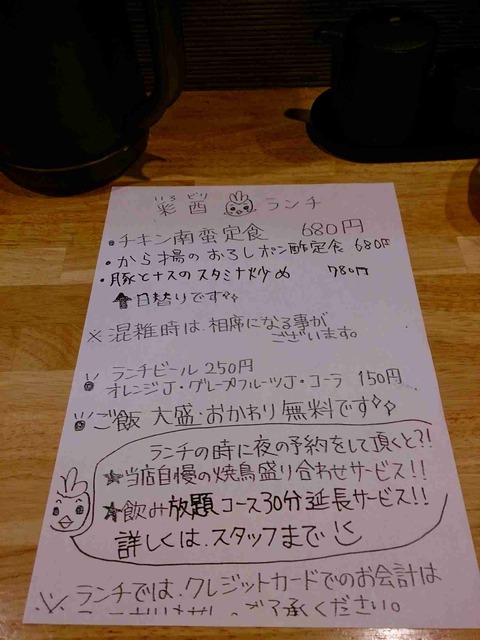 いろ どり
彩 酉 ランチ
・チキン南蛮定食 680円
・から揚のおろしポン酢定食 680円
・豚とナスのスタミナ炒め 780円
⬆日替りです
※混雑時は、相席になる事が
ございます。
ランチビール 250円
オレンジJ・グレープフルーツJ・コーラ 150円
ご飯 大盛・おかわり無料です
ランチの時に夜の予約をして頂くと?!
★当店自慢の焼鳥盛り合わせサービス!!
★飲み放題コース30分延長サービス!!
詳しくは、スタッフまで
※ランチでは、クレジットカードでのお会計は
ご了承ください。